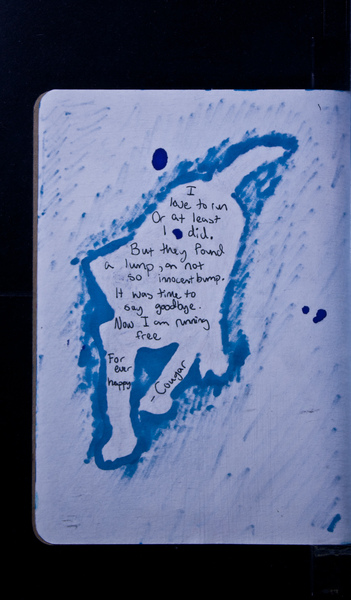 I
love to run
Or at least
I did.
But they found
a lump, an not
so innocent bump.
It was time to
say goodbye.
Now I am running
free
For
ever
happy
- Cougar